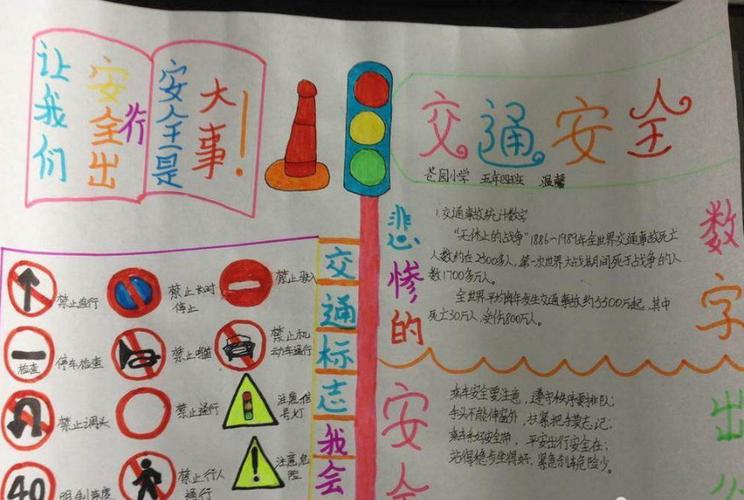 让我们
安全出
行
安全是
大事!
交通安全
芒园小学 五年四班 温馨
交通标志我会
禁止直行
禁止长时
停止
禁止驶入
检查
停车检查
禁止鸣喇
禁止机
动车通行
禁止调头
禁止通行
注意信
号灯
40
限制速度
禁止行人
通行
注意危
险
悲惨的
数字
1.交通事故统计数字
"无休止的战争"1886~1989年全世界交通事故死亡
人数约在2300多人,第一次世界大战期间死于战争的人
数1700多万人。
全世界平均每年发生交通事故约5300万起,其中
死亡30万人,受伤800万人。
安全
出
乘车安全要注意,遵守秩序要排队;
手头不能伸窗外,扶紧把手莫忘记;
站得稳当坐得好,紧急刹车危险少。